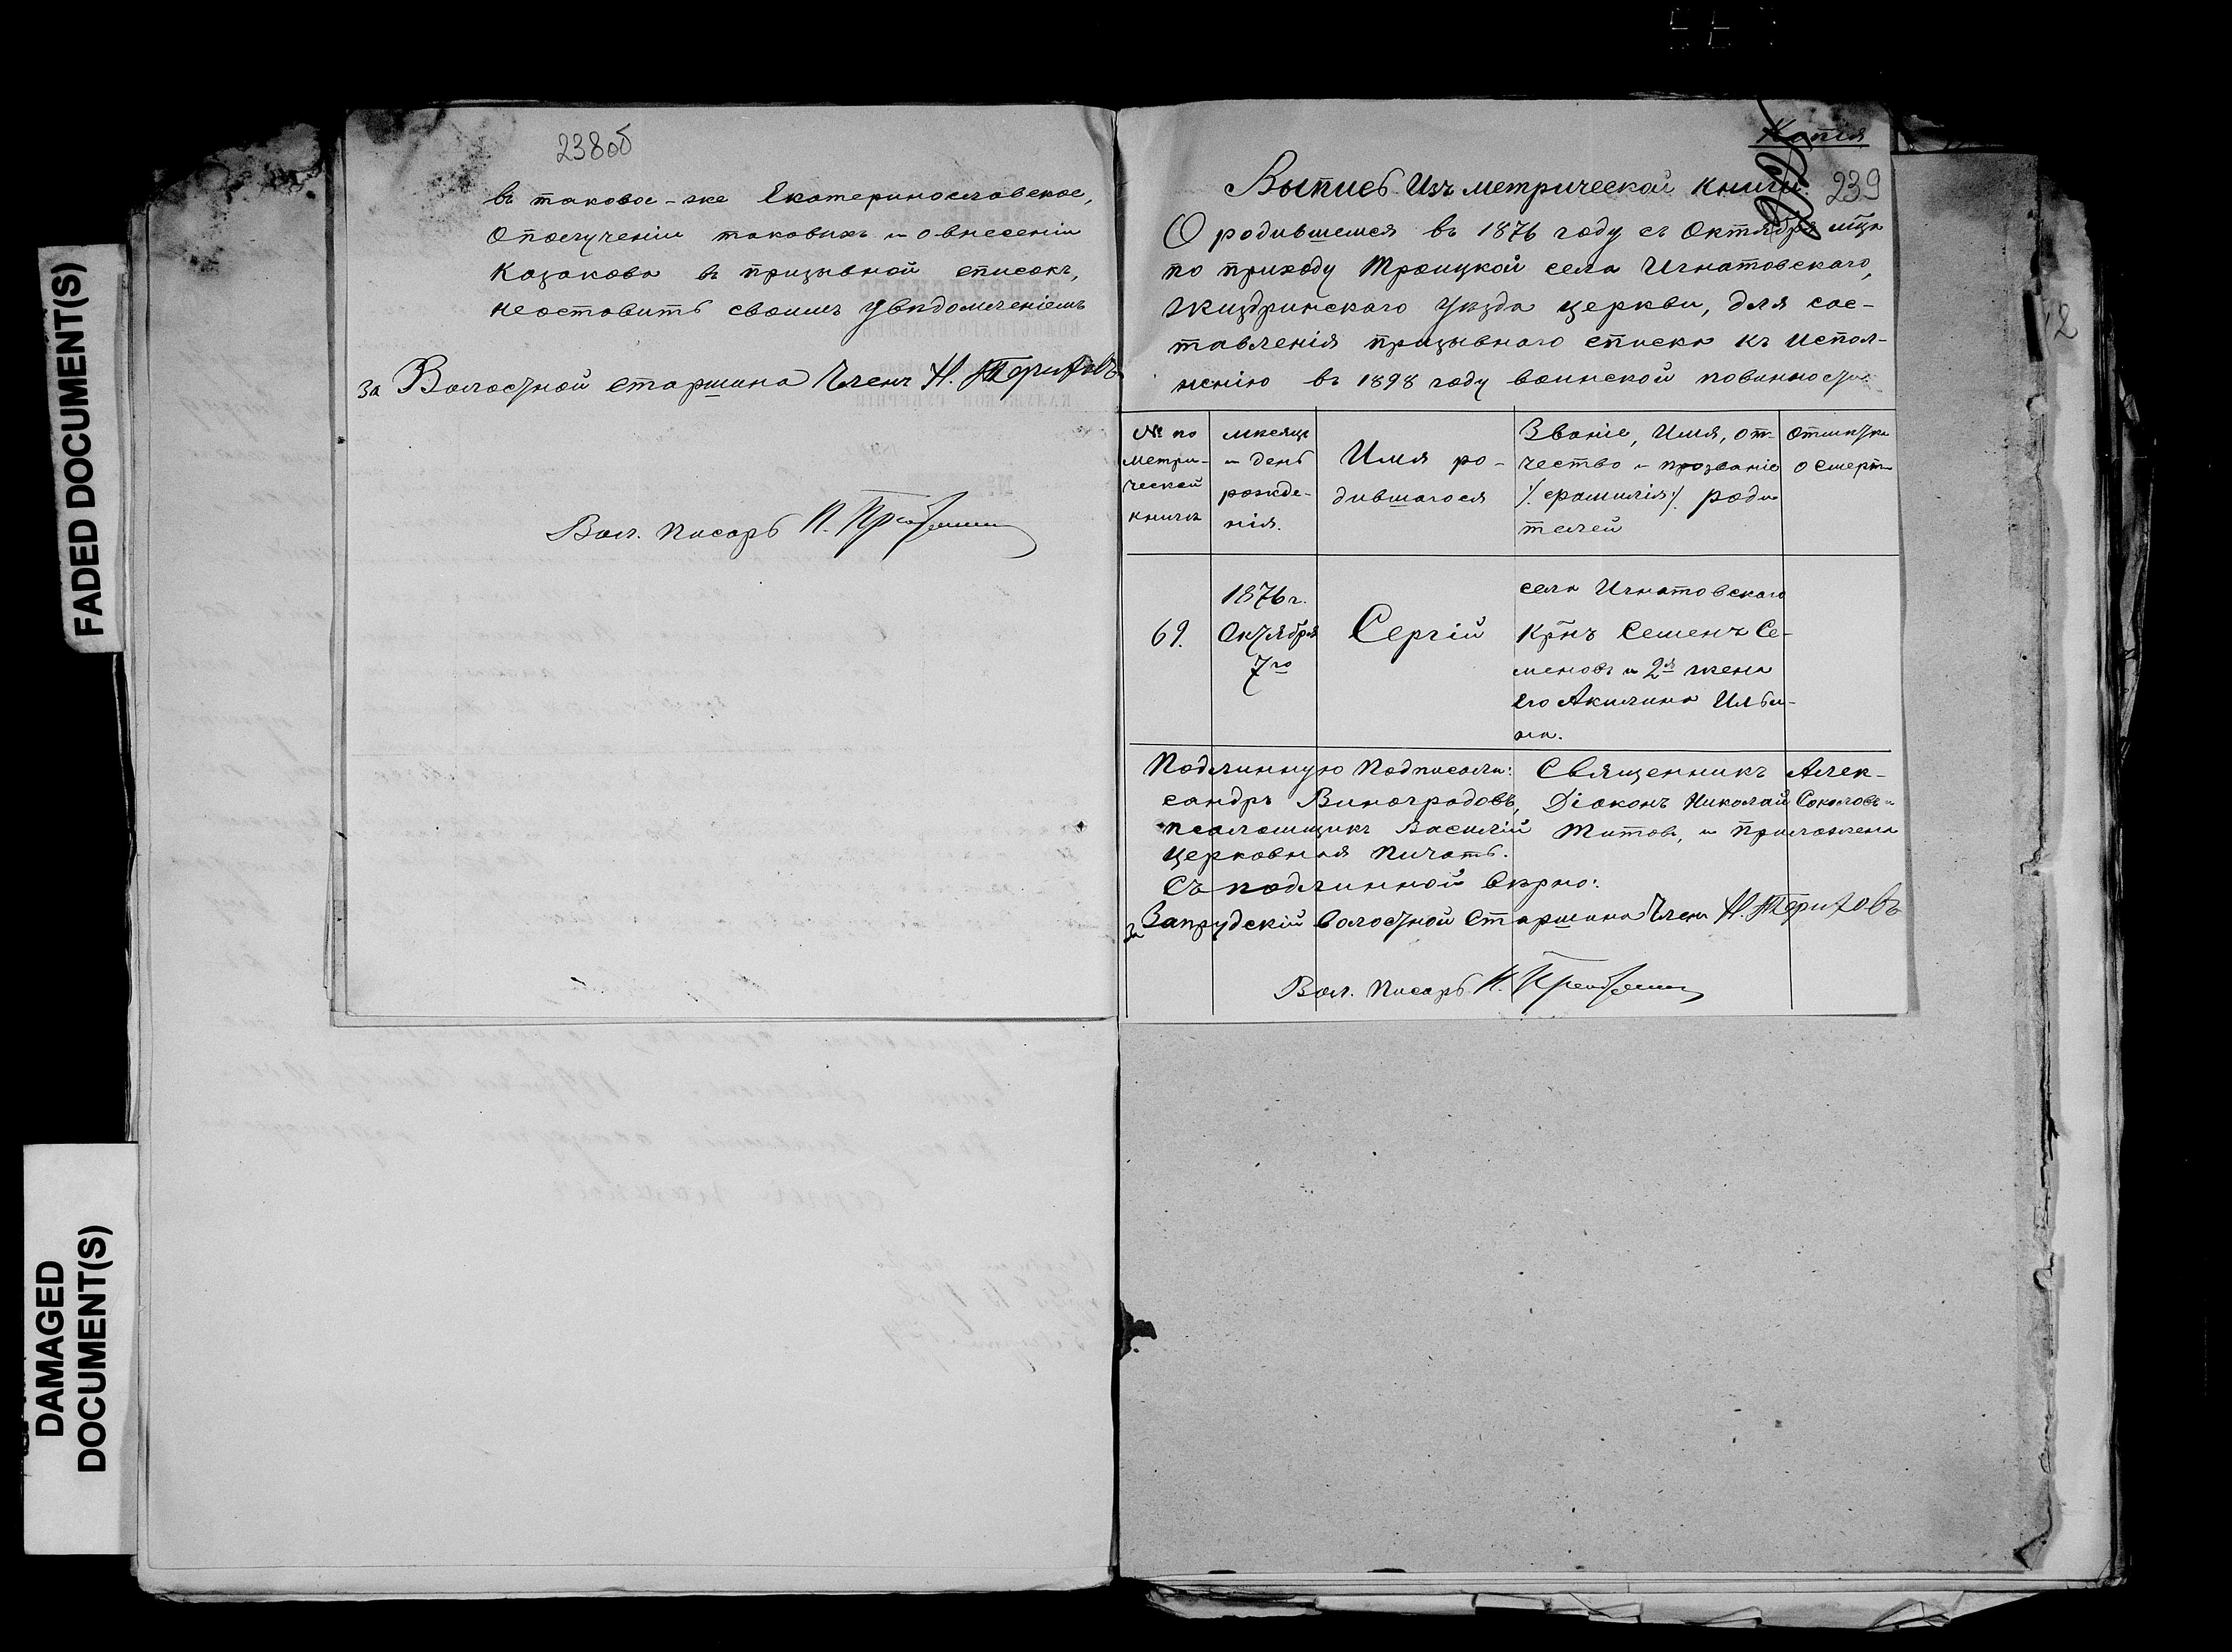 FADED DOCUMENT(S)
DAMAGED
DOCUMENT(S)
238об
въ таковое-же Екатеринославское,
О получении таковыхъ и о внесеніи
Казакова въ призывной списокъ,
не оставить своимъ увѣдомленіемъ
За Волостной старшина Членъ Н.
Вол. Писарь П.
Копія
239
Выпись Изъ метрической книги
О родившемся въ 1876 году съ Октября мца
по приходу Троицкой села Игнатовскаго,
Жиздринскаго уѣзда церкви, для сос-
тавленія призывного списка къ испол-
ненію въ 1898 году воинской повинности
№ по
метри-
ческой
книгѣ
мѣсяцъ
и день
рожде-
нія.
Имя ро-
дившагося
Званіе, Имя, от-
чество и прозваніе
/: фамилія :/ роди
телей
Отмѣтка
о смерти
69.
1876 г.
Октября
7го
Сергій
села Игнатовскаго
Крнъ Семенъ Се-
меновъ и 2я жена
Его Акилина Ильи-
на.
Подлинную Подписали: Священникъ Алек-
сандръ Виноградовъ, Діаконъ Николай Соколовъ и
псаломщикъ Василій Титовъ, и приложена
церковная печать.
Съ подлинной вѣрно:
За Запрудскій волостной Старшина Членъ Н.
Вол. Писарь П.
42